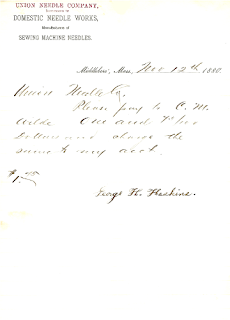 UNION NEEDLE COMPANY,
DOMESTIC NEEDLE WORKS,
Manufacturer of
SEWING MACHINE NEEDLES.
Middleboro', Mass., Nov 12th 1880
Union Needle Co.
Please pay to C. M.
One and
Dollars and charge the
same to my acct.
George H. Haskins.